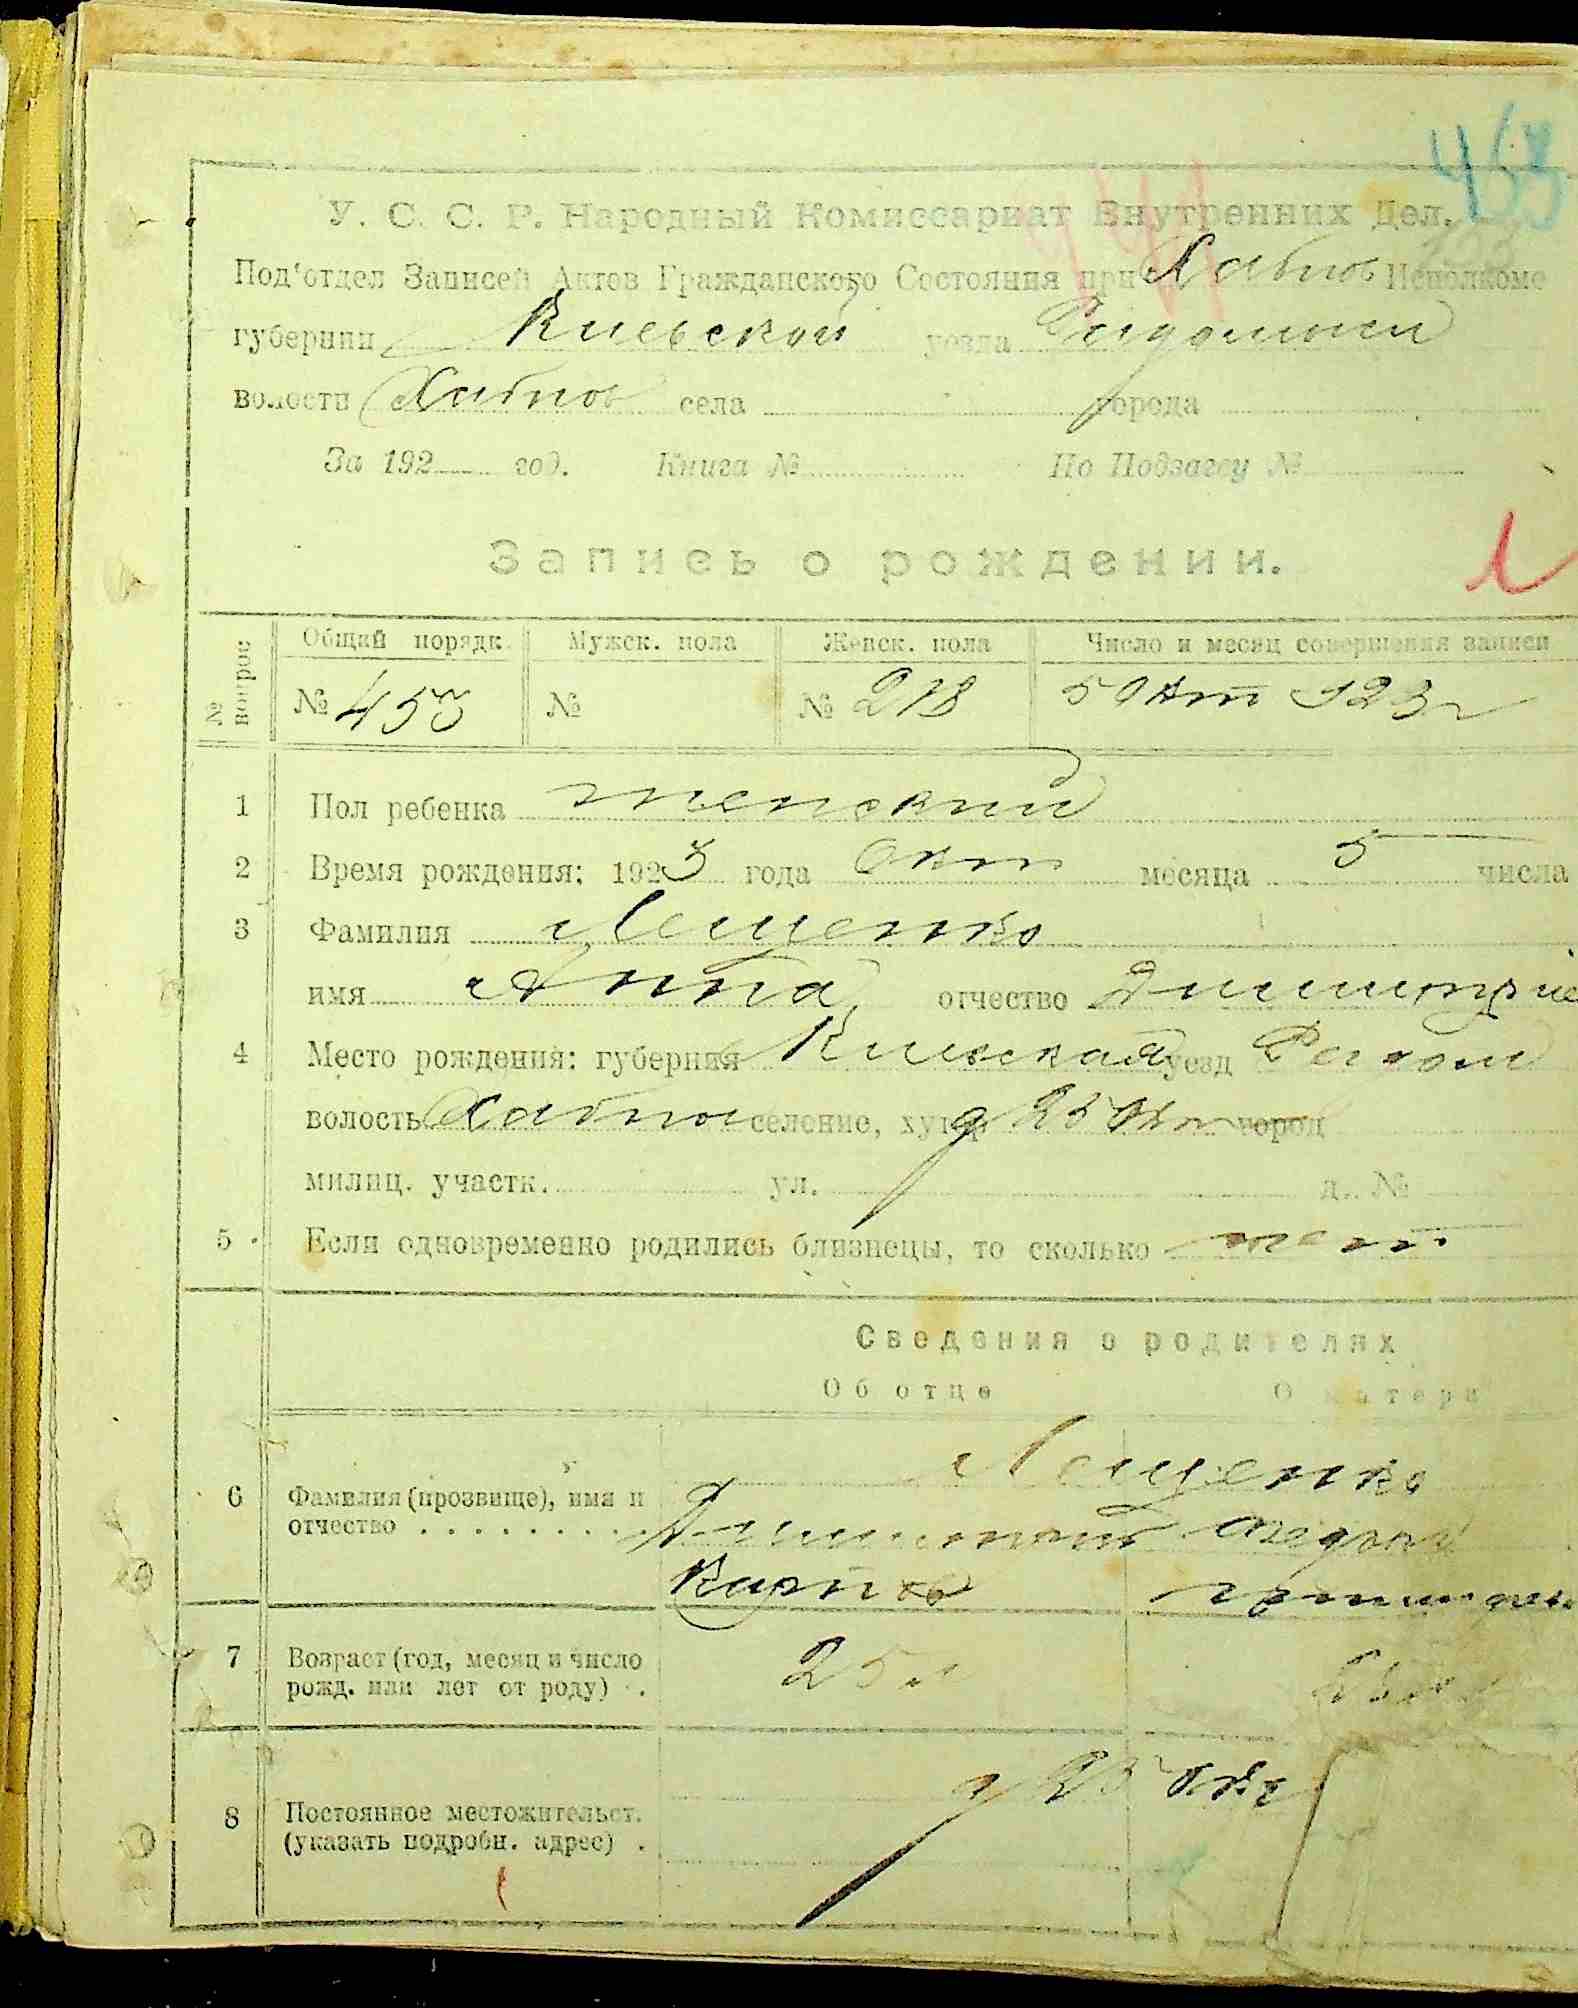 453
У. С. С. Р. Народный Комиссариат Внутренних Дел.
Под'отдел Записей Актов Гражданского Состояния при Хабнов Исполкоме
губернии Киевской уезда
волости Хабнов села города
За 192 год. Книга № По Подзагсу №
Запись о рождении.
№ вопрос
Общий порядк. Мужск. пола Женск. пола Число и месяц совершения записи
№ 453 № № 218 5 Окт 923 г
1 Пол ребенка женский
2 Время рождения: 1923 года Окт месяца 5 числа
3 Фамилия Лещенко
имя Анна отчество Дмитрие
4 Место рождения: губерния Киевская уезд
волость Хабнов селение, хутор город
милиц. участк. ул. д. №
5 Если одновременно родились близнецы, то сколько нет
Сведения о родителях
Об отце О матери
Лещенко
6 Фамилия (прозвище), имя и
отчество
7 Возраст (год, месяц и число
рожд. или лет от роду) . 25 л
8 Постоянное местожительст.
(указать подробн. адрес) .